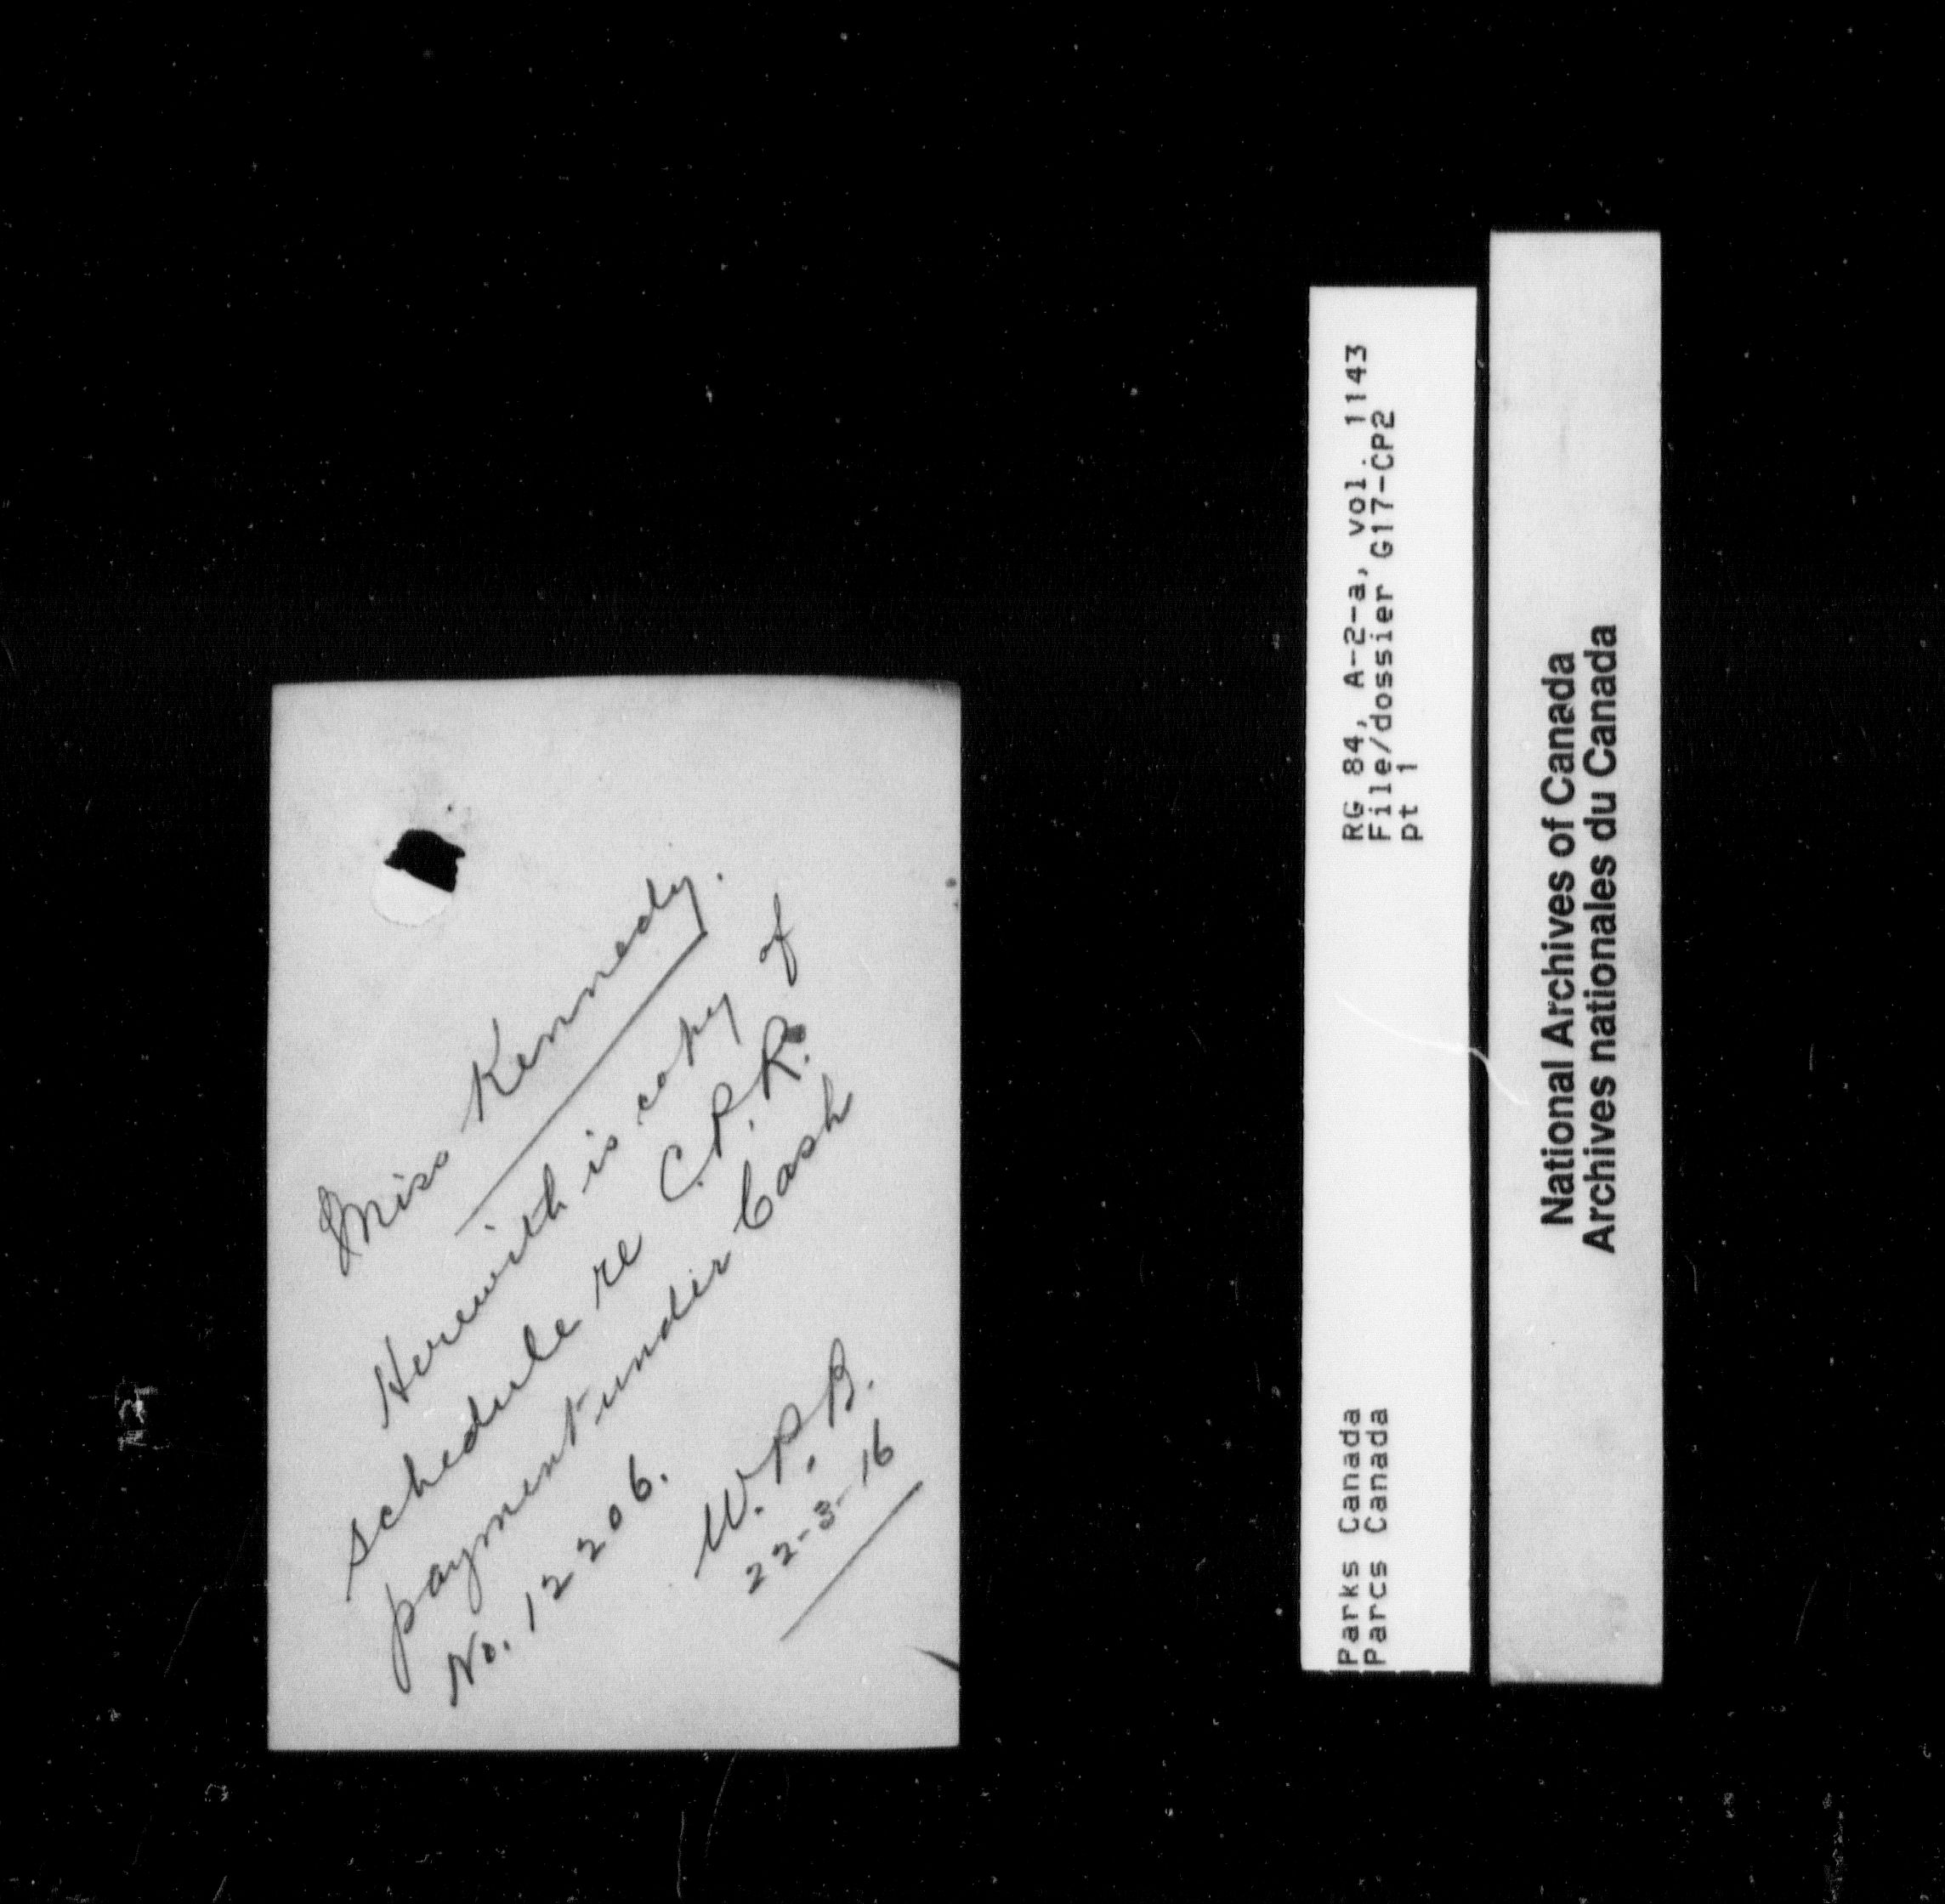 Miss Kennedy.
Herewith is copy of
schedule re C.P.R.
payment under Cash
No. 12206.
W.P.B.
22-3-16
Parks Canada
Parcs Canada
RG 84, A-2-a, vol. 1143
File/dossier G17-CP2
pt 1
National Archives of Canada
Archives nationales du Canada